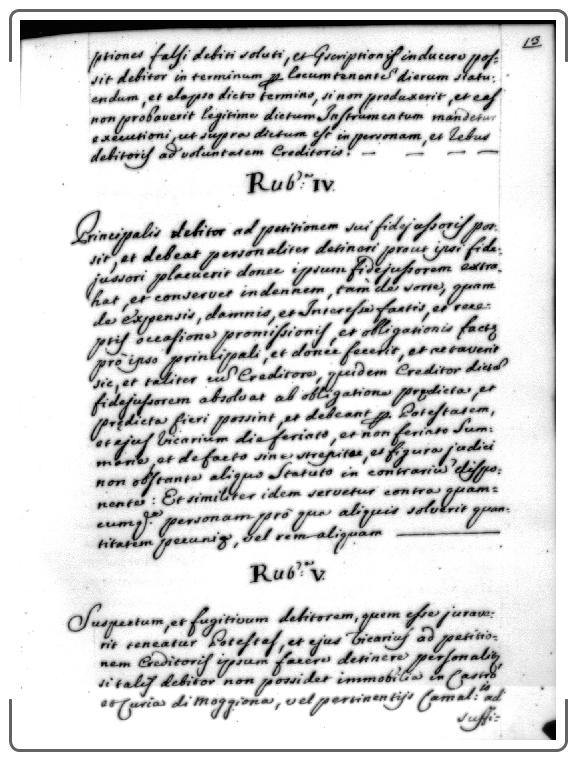 13
ptiones falsi debiti soluti, et Gscriptionis inducere pos-
sit debitor in terminum p locumtenente dierum statu-
endum, et elapso dicto termino, si non produxerit, et eas
non probaverit legitime dictum Instrumentum mandetur
executioni, ut supra dictum est in personam, et rebus
debitoris ad voluntatem Creditoris.
Rub. IV.
Principalis debitor ad petitionem sui fidejussoris pos-
sit, et debeat personaliter detineri prout ipsi fide-
jussori placuerit donec ipsum fidejussorem extra-
hat, et conservet indennem, tam de sorte, quam
de expensis, damnis, et Interesse factis, et rece-
ptis occasione promissionis, et obligationis factę
pro ipso principali, et donec fecerit, et actaverit
sic, et taliter cu Creditore, quidem Creditor dictu
fidejussorem absolvat ab obligatione prędicta, et
prędicta fieri possint, et debeant p Potestatem,
et ejus Vicarium die feriato, et non feriato sum-
marie, et de facto sine strepitu, et figura judici
non obstante aliquo Statuto in contrariu dispo-
nente: Et similiter idem servetur contra quam-
cumq. personam pro qua aliquis solverit quan-
titatem pecunię, vel rem aliquam
Rub. V.
Suspectum, et fugitivum debitorem, quem esse jurave-
rit teneatur Potestas, et ejus Vicarius ad petitio-
nem Creditoris ipsum facere detinere personalit,
si talis debitor non possidet immobilia in Castro
et Curia di Moggiona, vel pertinentijs Camal. ad
suffi-